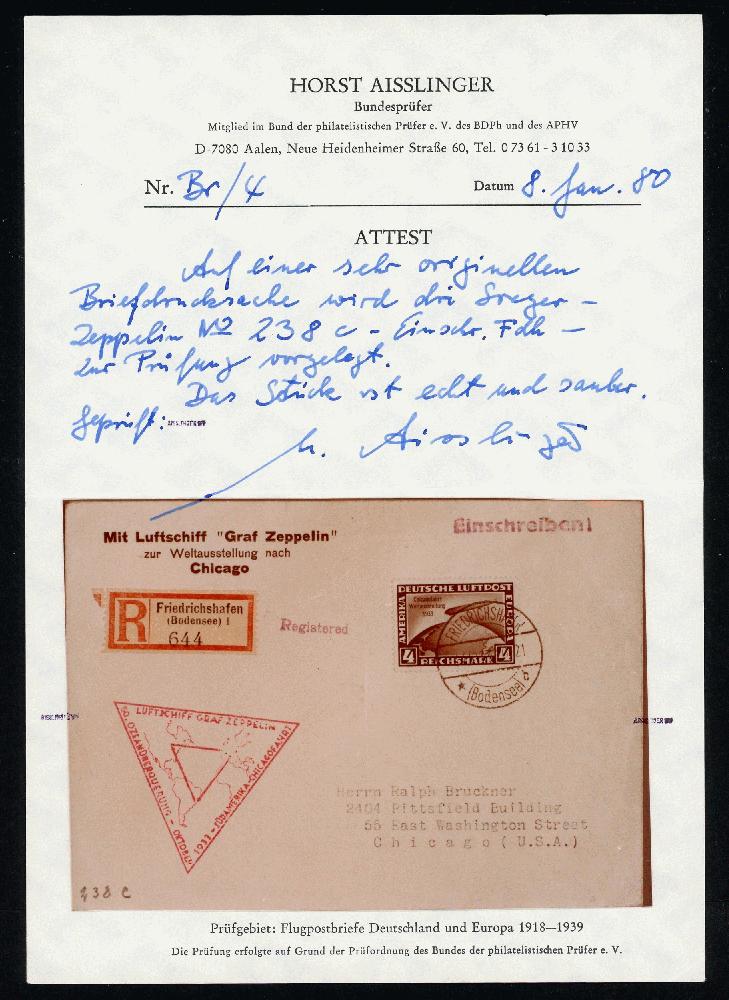 HORST AISSLINGER
Bundesprüfer
Mitglied im Bund der philatelistischen Prüfer e. V. des BDPh und des APHV
D-7080 Aalen, Neue Heidenheimer Straße 60, Tel. 0 73 61 - 3 10 33
Nr. Br/4 Datum 8. Jan. 80
ATTEST
Auf einer sehr originellen
Briefdrucksache wird die Sieger-
Zeppelin No 238 c - Einschr. Fdh -
zur Prüfung vorgelegt.
Das Stück ist echt und sauber.
geprüft:
H. Aisslinger
Mit Luftschiff "Graf Zeppelin"
zur Weltausstellung nach
Chicago
Einschreiben!
R Friedrichshafen
(Bodensee) 1
644
Registered
DEUTSCHE LUFTPOST
AMERIKA
EUROPA
Chicagofahrt
Weltausstellung
1933
4 REICHSMARK 4
FRIEDRICHSHAFEN
(Bodensee) b
LUFTSCHIFF GRAF ZEPPELIN
50. OZEANÜBERQUERUNG - OKTOBER
1933 - SÜDAMERIKA-CHICAGOFAHRT
Herrn Ralph Bruckner
2404 Pittsfield Building
55 East Washington Street
Chicago (U.S.A.)
238 c
Prüfgebiet: Flugpostbriefe Deutschland und Europa 1918—1939
Die Prüfung erfolgte auf Grund der Prüfordnung des Bundes der philatelistischen Prüfer e. V.